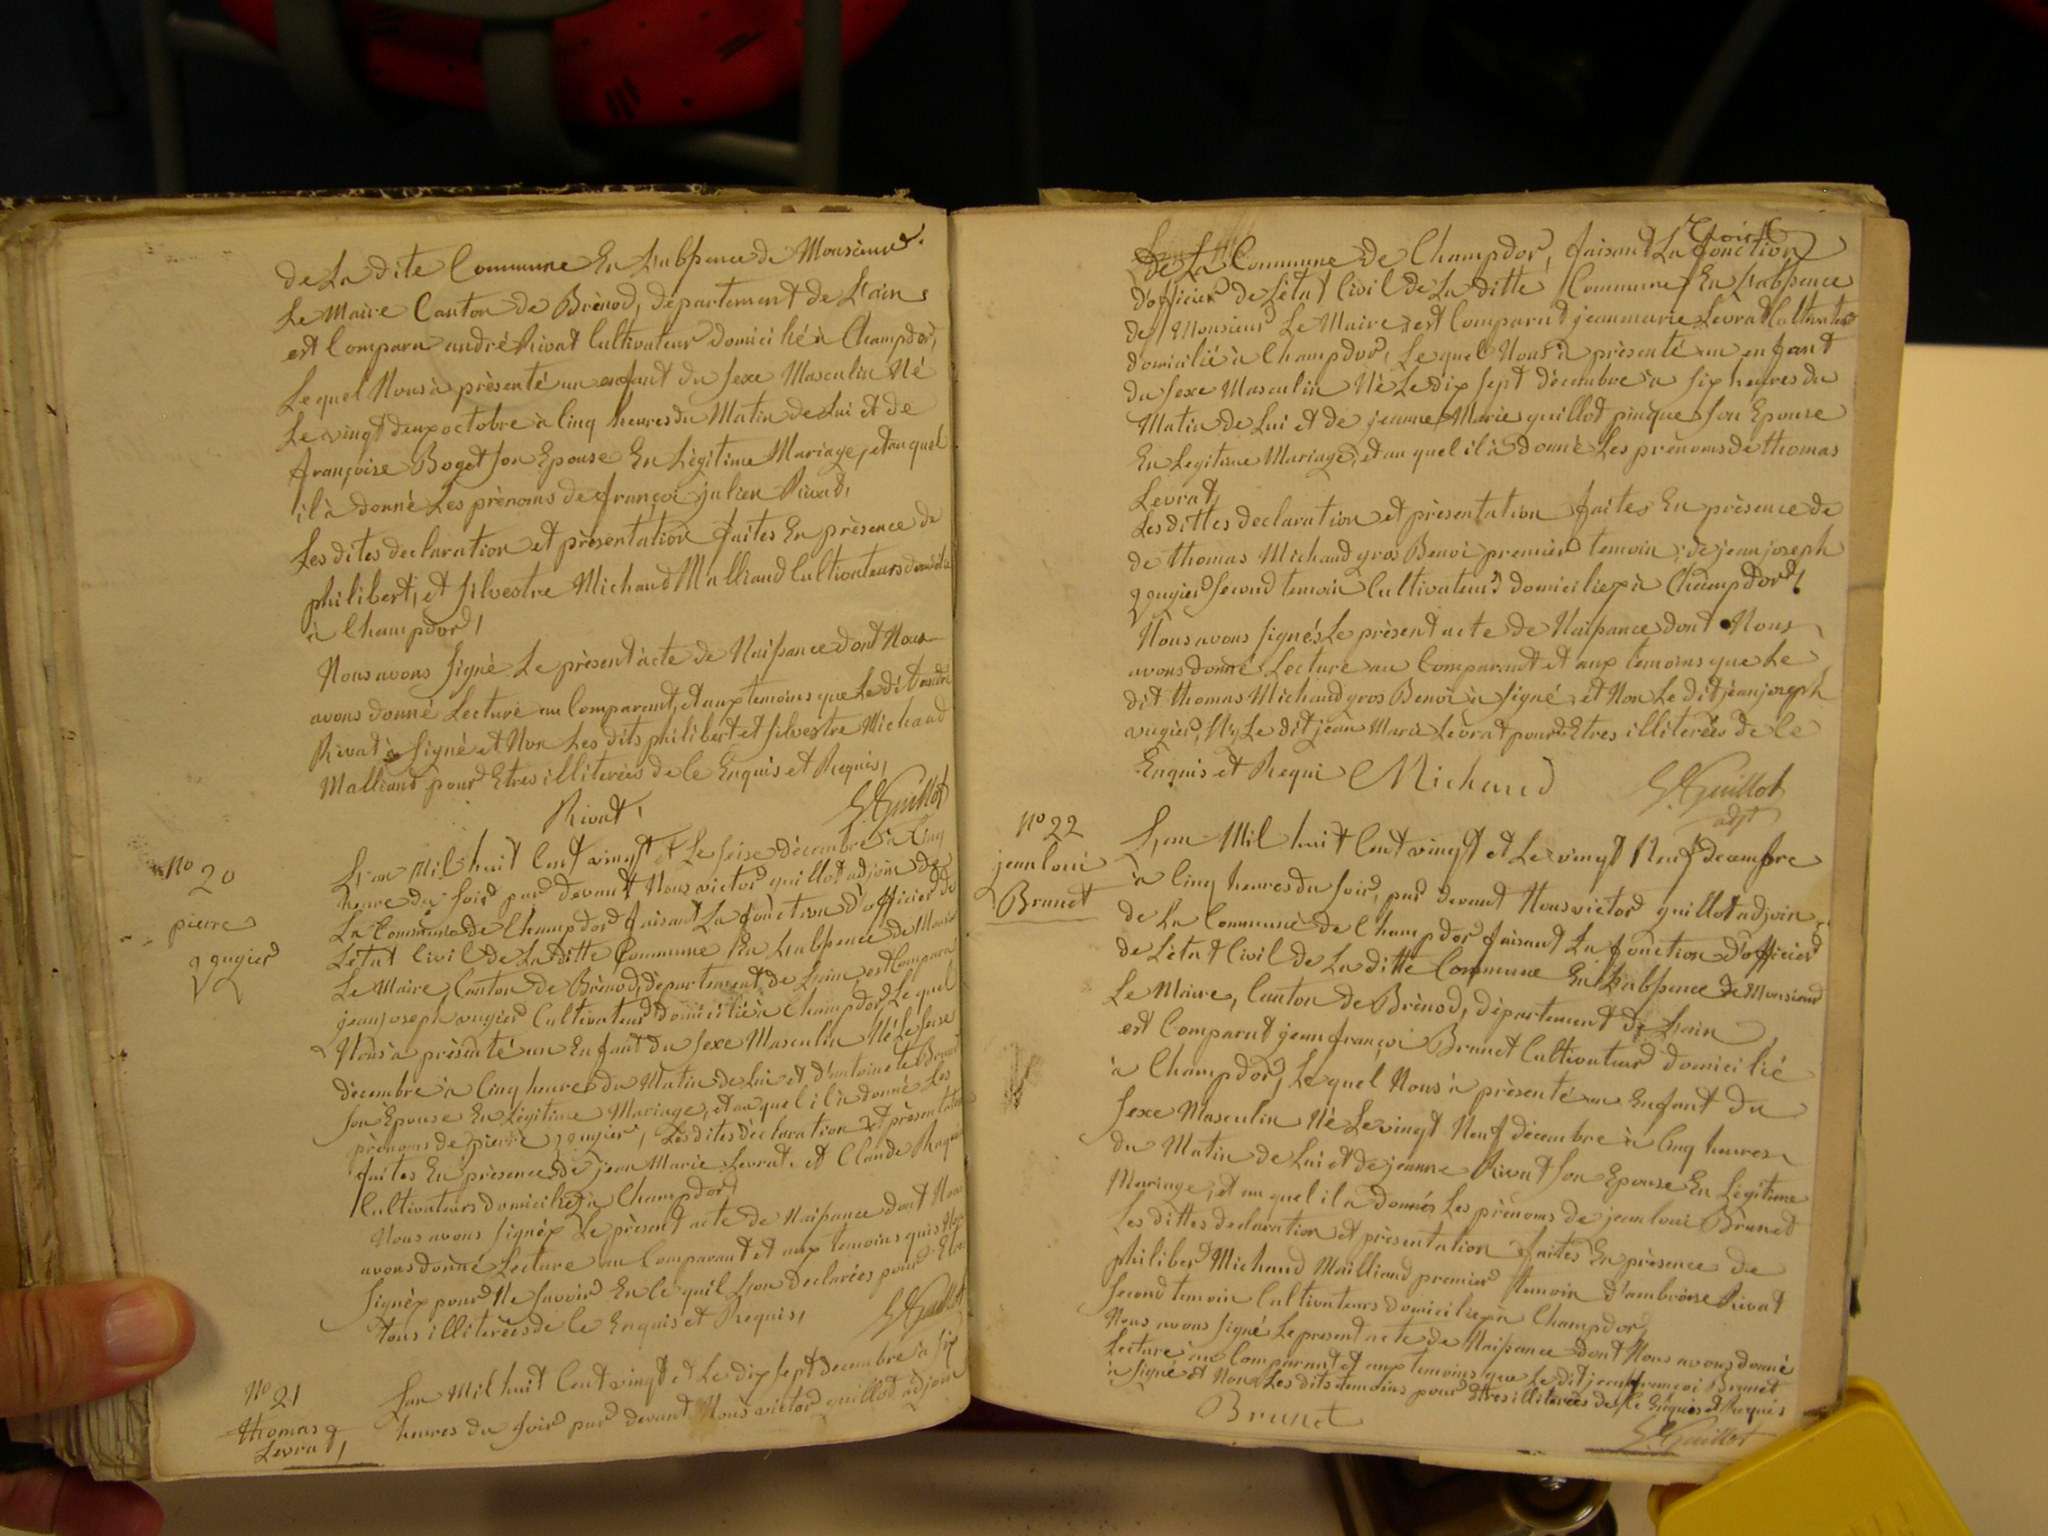 de La dite Commune En L'abssence de Monsieur
Le Maire Canton de Brénod, département de L'ain
est Comparu andré Rivat Cultivateur domicilié à Champdor,
Lequel Nous à présenté un enfant du sexe Masculin Né
Le vingt deux octobre à Cinq heures du Matin de Lui et de
françoise Boget son Epouse En Légitime Mariage, et auquel
il à donné Les prénoms de françoi julien Rivat,
Les dites declaration et présentation faites En présence de
philibert, et silvestre Michaud Malliand Cultivateurs
à Champdor,
Nous avons signé Le présent acte de Naissance dont Nous
avons donné Lecture au Comparant, et aux temoins que Le dit andré
Rivat à signé et Non Les dits philibert et silvestre Michaud
Malliand pour Etres illiterées de ce Enquis et Requis,
Rivat, Guillot
No 20
pierre
L'an Mil huit Cent vingt et Le seise décembre à Cinq
heure du soir par devant Nous victor guillot adjoin de
La Commune de Champdor faisant La fonction d'officier de
L'état Civil de La ditte Commune En L'abssence de
Le Maire, Canton de Brénod, département de L'ain, est Comparu
jean joseph Cultivateur domicilié à Champdor, Lequel
Nous à présenté un Enfant du sexe Masculin Né Le seise
décembre à Cinq heure du Matin de Lui et d'antoinete
son Epouse En Légitime Mariage, et auquel il à donné Les
prénoms de pierre Les dites déclaration et
faites En présence de jean Marie Levrat, et Claude
Cultivateurs domiciliez à Champdor,
Nous avons signéz Le présent acte de Naissance dont Nous
avons donné Lecture au Comparant et aux temoins
signéz pour Ne savoir En Ce quil son declarées pour
tous illiterées de Ce Enquis et Requis, Guillot
No 21
thomas
Levrat,
L'an Mil huit Cent vingt et Le dix sept decembre à six
heures du soir par devant Nous victor guillot adjoin
de La Commune de Champdor, faisant La fonction
d'officier de L'état Civil de La ditte Commune En L'abssence
de Monsieur Le Maire est Comparut jean marie Levrat Cultivateur
domicilié à Champdor, Lequel Nous à présenté un enfant
du sexe Masculin Né Le dix sept décembre à six heures du
Matin de Lui et de jeanne Marie guillot pinque son Epouse
En Legitime Mariage, et au quel il à donné Les prénoms de thomas
Levrat,
Les dittes declaration et présentation faites En présence de
de thomas Michaud gros Benoi premier temoin, de jean joseph
second temoin Cultivateurs domiciliez à Champdor,
Nous avons signés Le présent acte de Naissance dont Nous
avons donné Lecture au Comparant et aux temoins que Le
dit thomas Michaud gros Benoi à signé, et Non Le dit jean joseph
Ny Le dit jean Marie Lévrat pour Etres illiterées de Ce
Enquis et Requi Michaud Guillot
adjt
No 22
jean loui
Brunet
L'an Mil huit Cent vingt et Le vingt Neuf decembre
à Cinq heures du soir, par devant Nous victor guillot adjoin
de La Commune de Champdor faisant La fonction d'officier
de L'état Civil de La ditte Commune En L'abssence de Monsieur
Le Maire, Canton de Brénod, département de L'ain
est Comparut jean françoi Brunet Cultivateur domicilié
à Champdor, Lequel Nous à présenté un Enfant du
sexe Masculin Né Le vingt Neuf décembre à Cinq heures
du Matin de Lui et de jeanne Rivat son Epouse En Légitime
Mariage, et au quel il a donnés Les prénoms de jean loui Brunet
Les dittes declaration et présentation faites En présence de
philiber Michaud Mailliand premier temoin d'ambroise Rivat
second temoin Cultivateurs domiciliez à Champdor,
Nous avons signé Le présent acte de Naissance dont Nous avons donné
Lecture au Comparant et aux temoins que Le dit jean françoi Brunet
à signé et Non Les dits temoins pour Etres illiterées de Ce Enquis et Requis
Brunet Guillot